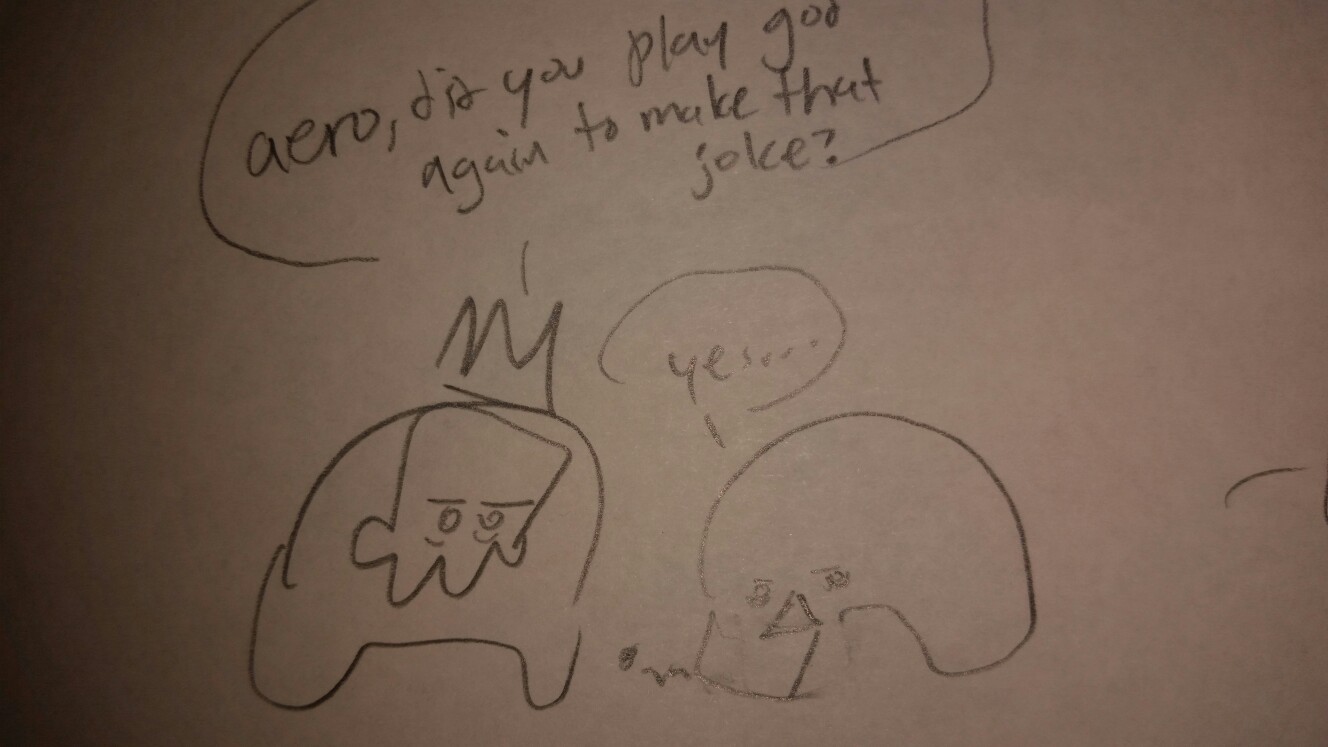 aero, did you play god
again to make that
joke?
yes...